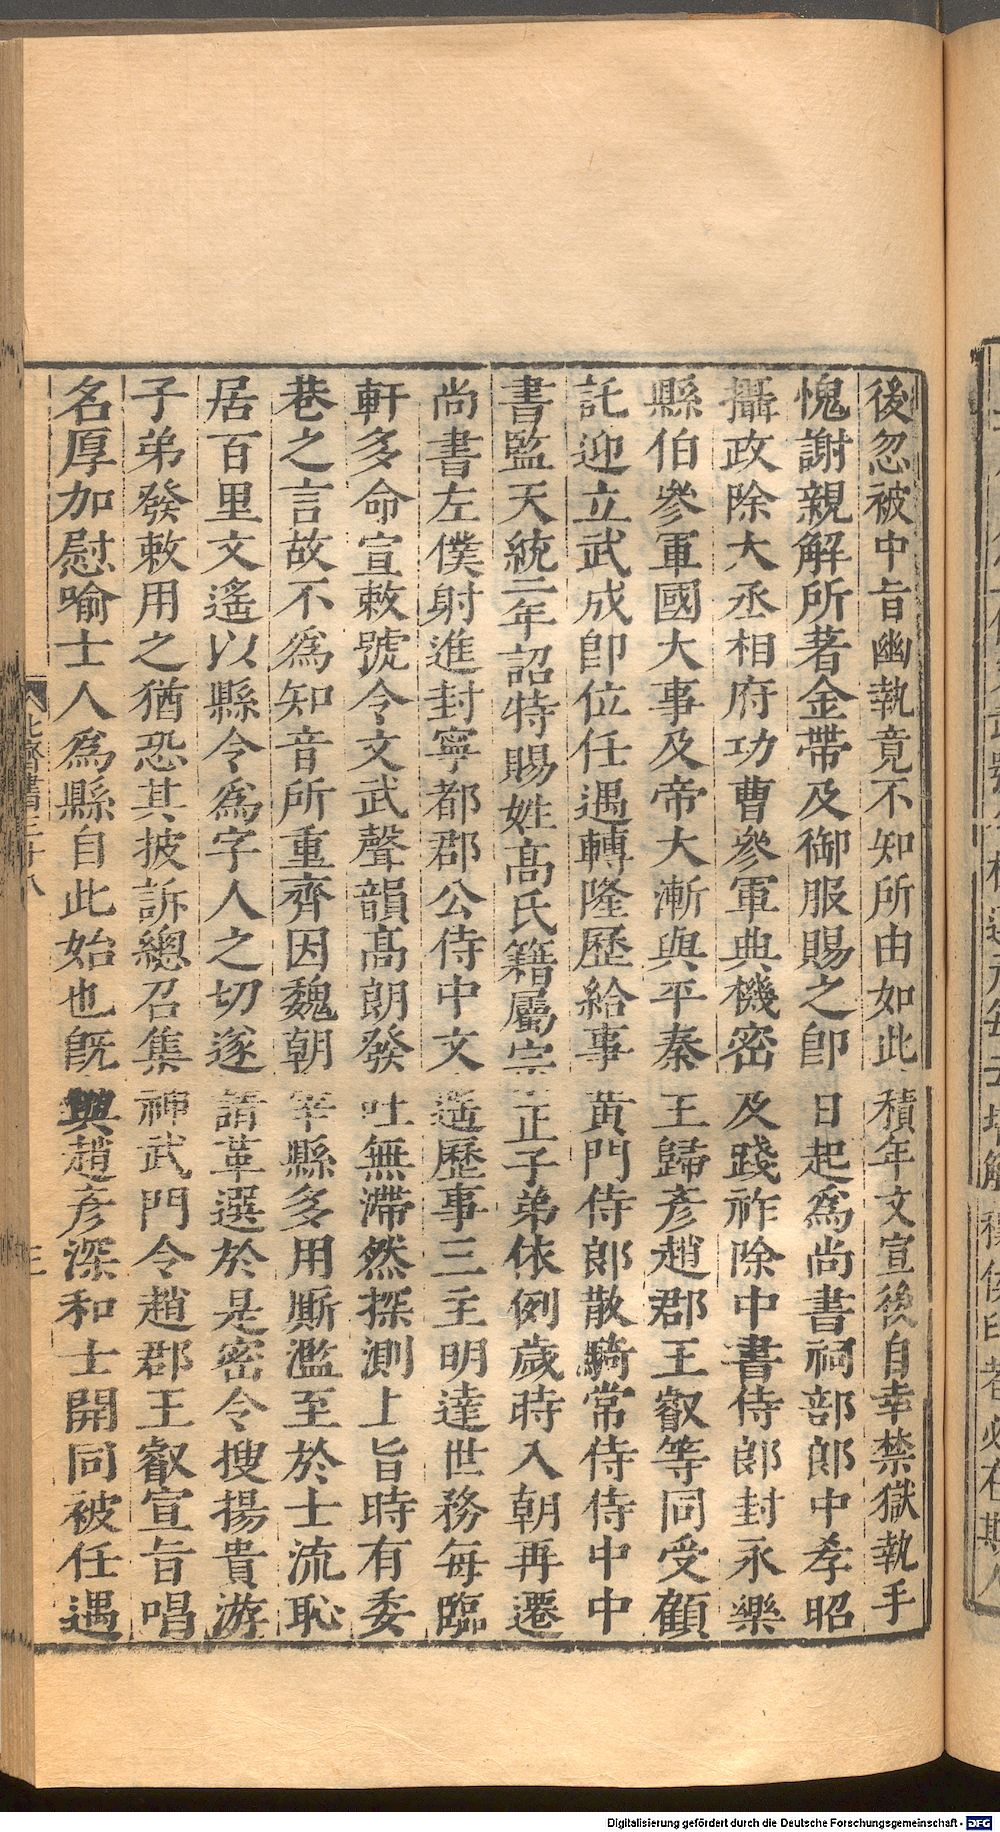 後忽被中旨幽執竟不知所由如此積年文宣後自幸禁獄執手
愧謝親解所著金帶及御服賜之卽日起爲尚書祠部郎中孝昭
攝政除大丞相府功曹參軍典機密及踐祚除中書侍郎封永樂
縣伯參軍國大事及帝大漸與平秦王歸彥趙郡王叡等同受顧
託迎立武成卽位任遇轉隆歷給事黃門侍郎散騎常侍侍中中
書監天統二年詔特賜姓高氏籍屬宗正子弟依例歲時入朝再遷
尚書左僕射進封寧都郡公侍中文遙歷事三主明達世務每臨
軒多命宣敕號令文武聲韻高朗發吐無滯然探測上旨時有委
巷之言故不爲知音所重齊因魏朝宰縣多用厮濫至於士流恥
居百里文遙以縣令爲字人之切遂請革選於是密令搜揚貴游
子弟發敕用之猶恐其披訴總召集神武門令趙郡王叡宣旨唱
名厚加慰喻士人爲縣自此始也旣與趙彥深和士開同被任遇
北齊書三十八
三
Digitalisierung gefördert durch die Deutsche Forschungsgemeinschaft - DFG